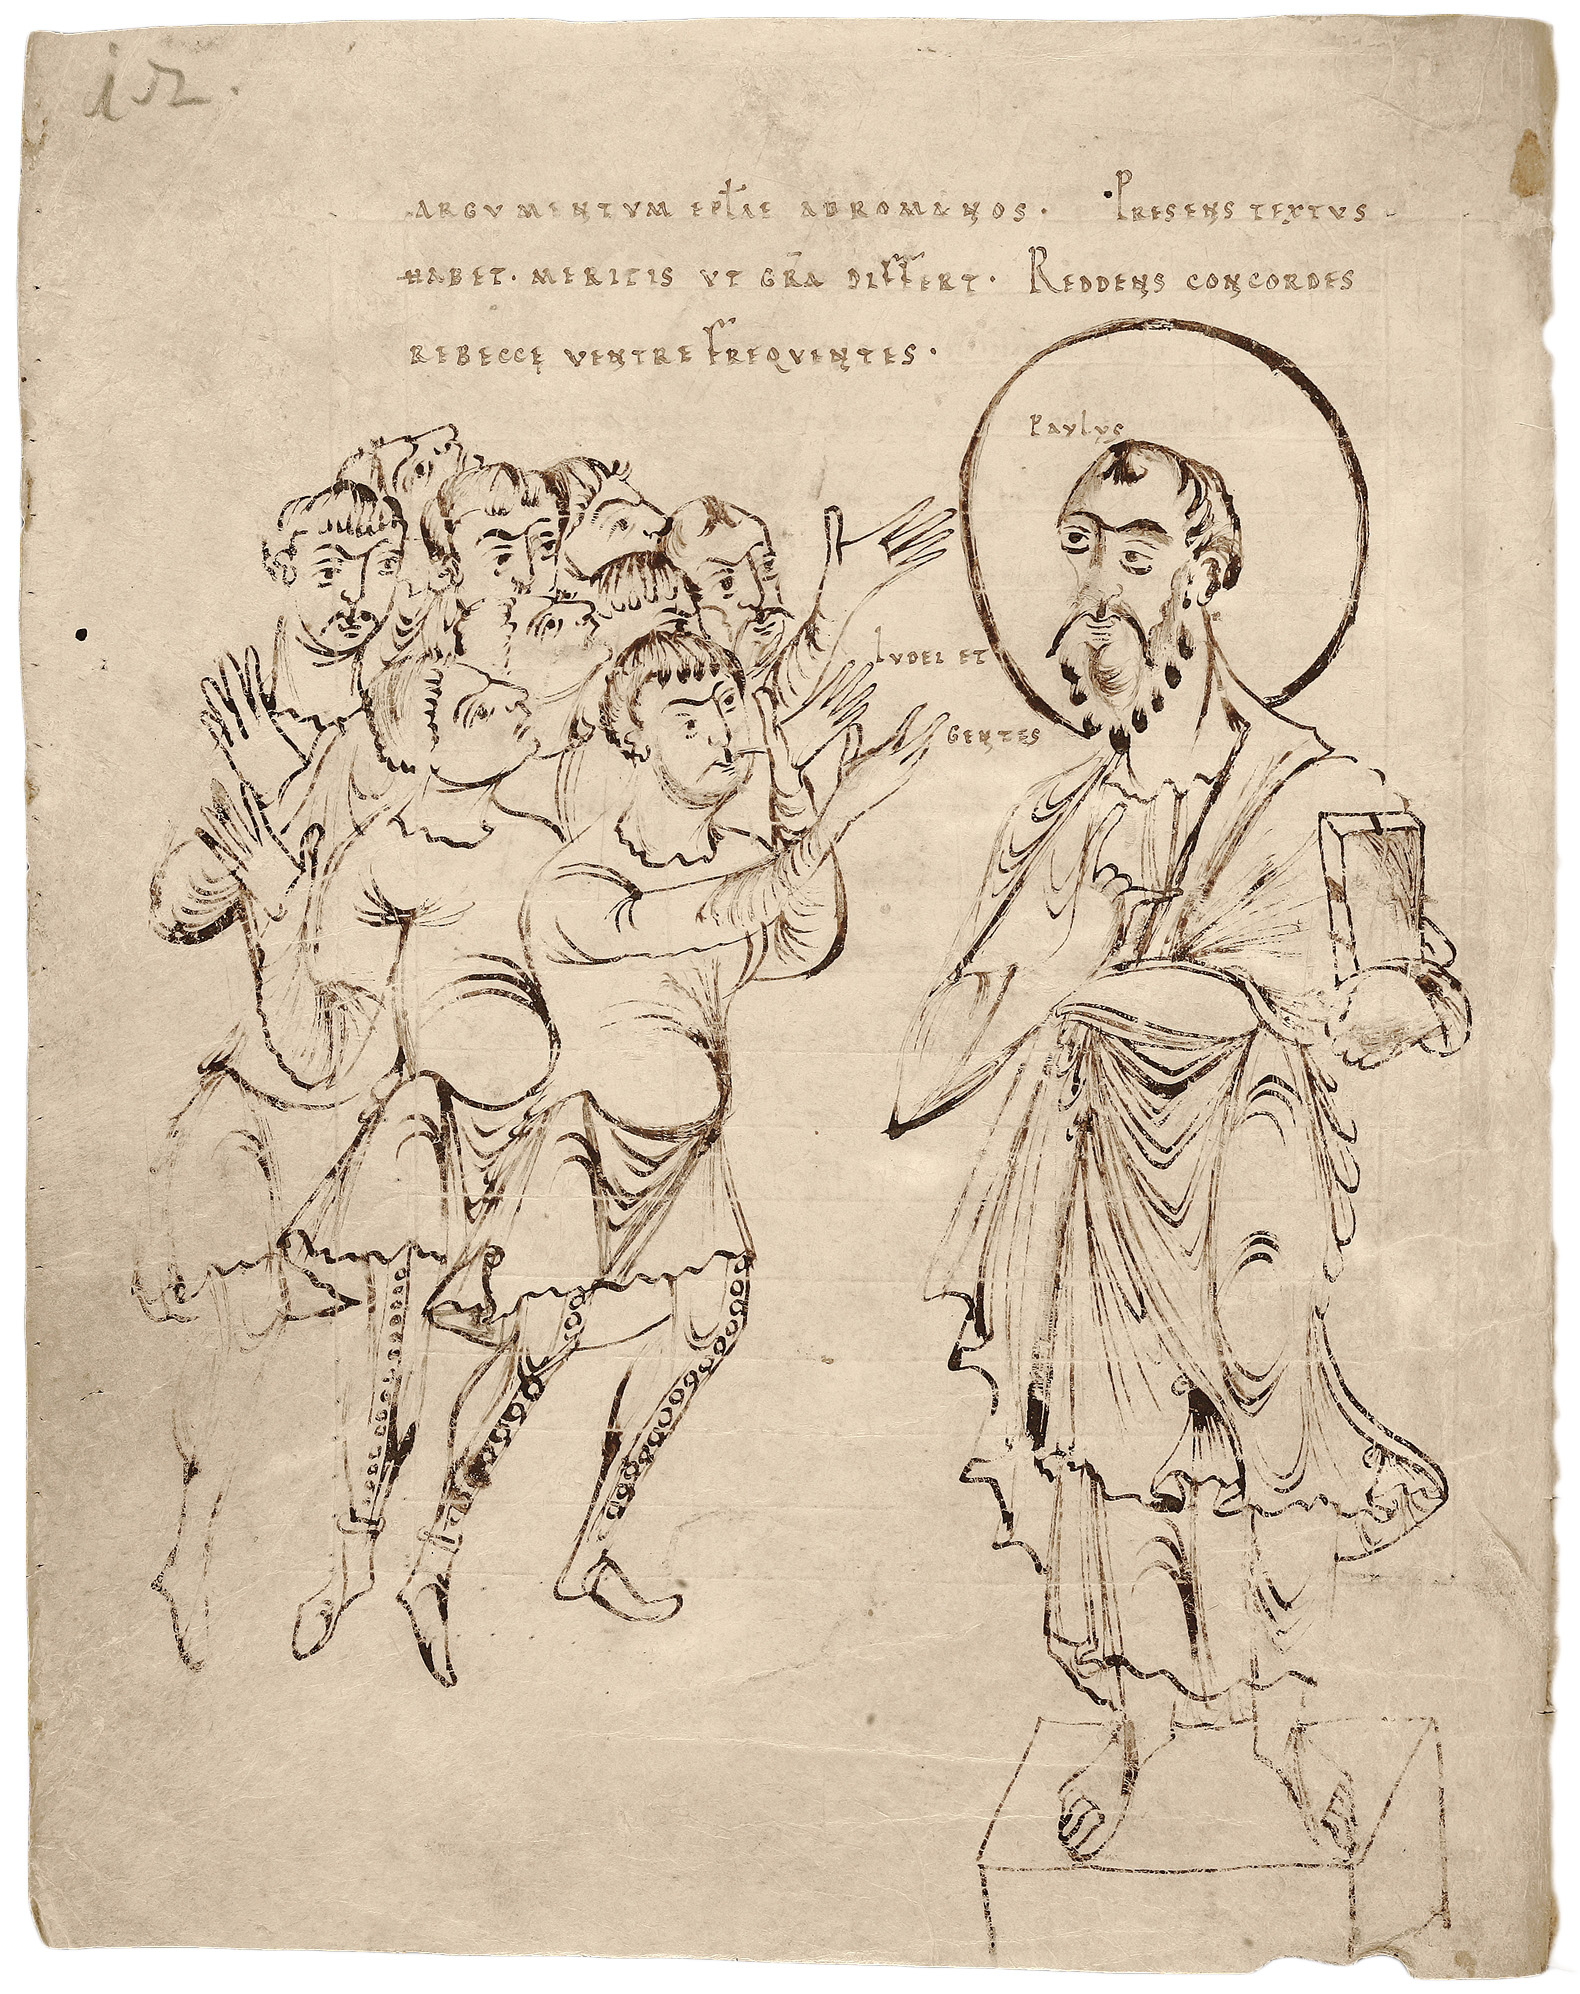 12.
ARGUMENTUM EPĪAE AD ROMANOS. PRESENS TEXTUS
HABET. MERITIS UT GRĀ DIFFERT. REDDENS CONCORDES
REBECCĘ VENTRE FREQUENTES.
PAULUS
IUDEI ET
GENTES